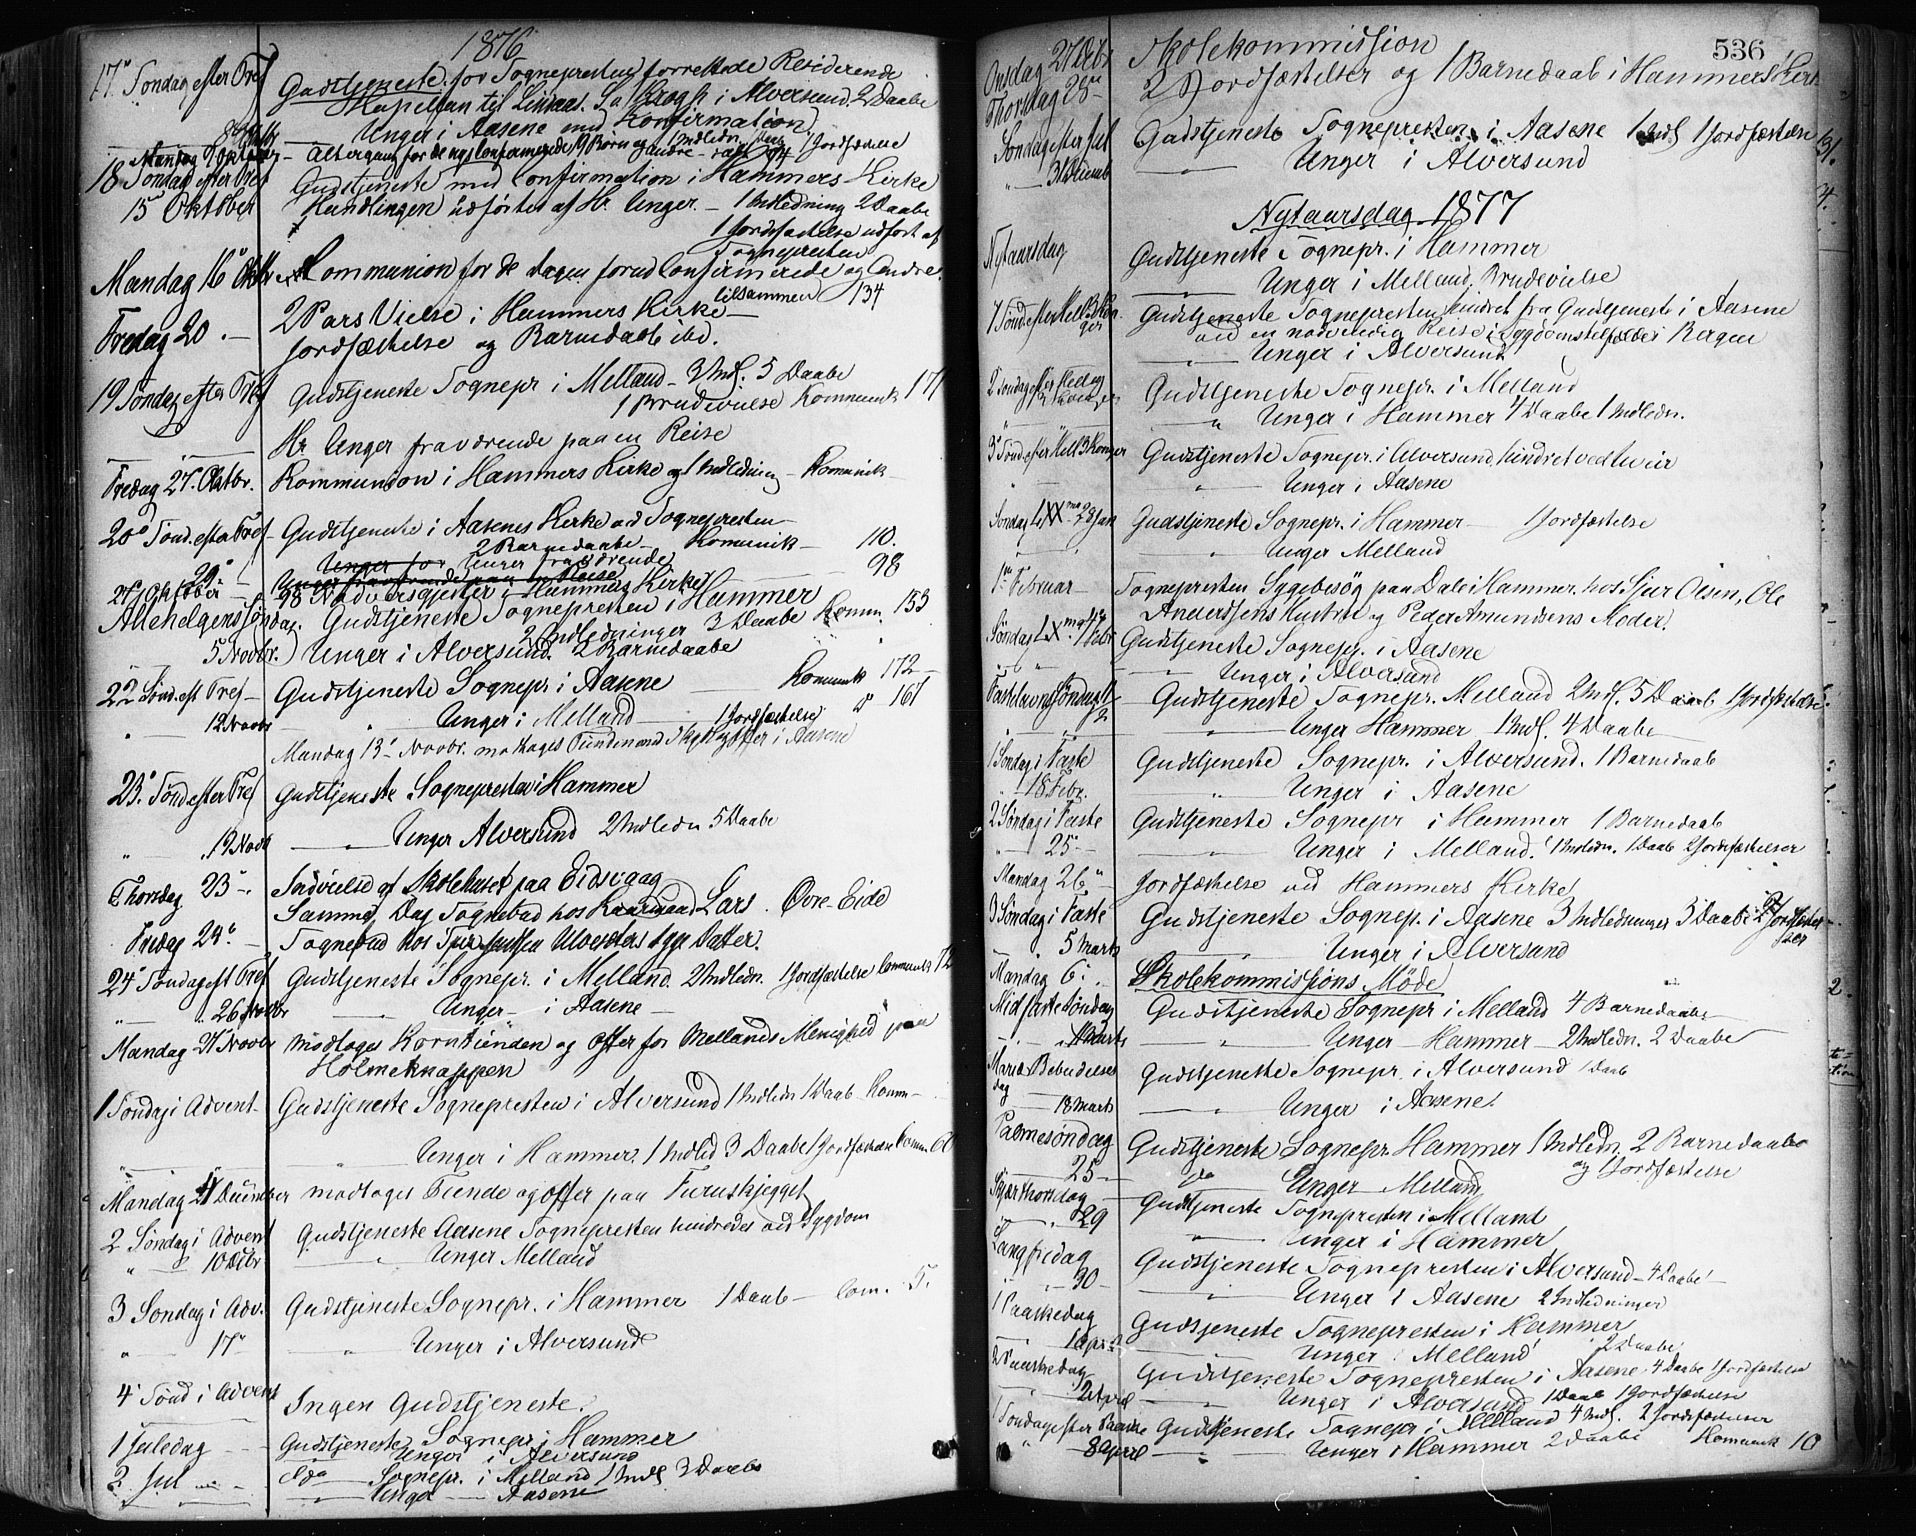 1876
17de Søndag efter Tref
Gudstjeneste for Sognepresten forrettede Residerende
Kapellan til Krogh i Alversund. 2 Daabe
8 Oktbr
Unger i Aasene med Konfirmation
Mandag 9 Oktober - Altergang for de nys Confirmerede Børn og andre 1 Indledn. 1 Jordfæstelse
18 Søndag efter Tref
Gudstjeneste med Confirmation i Hammers Kirke
15 Oktober
Handlingen udførtes af Hr. Unger. - 1 Indledning 2 Daabe
1 Jordfæstelse udført af
Sognepresten
Mandag 16 Oktbr Communion for de dagen forud Confirmerede og Andre.
tilsammen 134
Fredag 20. - 2 Pars Vielse i Hammers Kirke -
Jordfæstelse og Barnedaab ibd.
19 Søndag efter Tref
Gudstjeneste Sognepr. i Melland - 3 Indl. 5 Daabe
1 Brudevielse Kommunik 171
Hr Unger fraværende paa en Reise
Fredag 27. Oktbr. Kommunion i Hammers Kirke og 1 Indledning - Komunik -
20de Sönd. efter Tref - Gudstjeneste i Aasenes Kirke ved Sognepresten -
2 Barnedaabe - Komunik - 110.
29 Unger for Unger fraværende
Unger fraværende paa en Reise 98
27 Oktober - 98 Nadversgjester i Hammers Kirke
Allehelgens Søndag. Gudstjeneste Sognepresten i Hammer
2 Indledninger 3 Daabe Komm. 153
5 Novbr. Unger i Alversund. 2 Barnedaabe
22 Sönd. eft Tref - Gudstjeneste Sognepr. i Aasene Komunik 172 -
" 12 Novbr " Unger i Melland - 1 Jordfæstelse d 161
Mandag 13. Novbr. modtoges Tienden and i Aasene
23. Sönd efter Tref Gudstjeneste Sognepresten i Hammer
" 19 Novb - Unger Alversund 2 Indledn 5 Daabe
Thorsdag 23. Indvielse af Skolehuset paa Eidsvaag
Samme Dag Sognebud hos Lars Øvre-Eide
Fredag 24. - Sognebud hos Datter.
24 Søndag eft Tref Gudstjeneste Sognepr. i Melland. 2 Indledn. 1 Jordfæstelse Communik 72
" 26 Novbr - Unger - i Aasene -
Mandag 27 Novbr modtoges Korntienden og Offer for Mellands Menighed paa
Holmeknappen
1 Søndag i Advent - Gudstjeneste Sognepresten i Alversund 1 Indledn 1 Daab Komm -
" Unger i Hammer. 1 Indled 3 Daabe 1 Jordfæstelse Comm 60
Mandag 4 December modtoges Tiende og Offer paa Furuskjegget
2 Søndag i Advent Gudstjeneste Aasene Sognepresten hindredes ved Sygdom
" 10 Dcbr. " Unger Melland
3 Søndag i Adv. Gudstjeneste Sognepr. i Hammer 1 Daab - Com. 5.
" 17 " Unger i Alversund
4 Sönd i Advent Ingen Gudstjeneste.
1 Juledag - Gudstjeneste Sognepr. i Hammer
Unger i Alversund
2 Jul - do Sognepr. i Melland 1 Indl 3 Daabe
Unger - Aasene
536
Onsdag 27 Dcbr Skolekommission
Thorsdag 28 2 Jordfæstelser og 1 Barnedaab i Hammers Kirke
Søndag efter Jul Gudstjeneste Sognepresten i Aasene 1 Indl 1 Jordfæstelse
" 31 Decemb - Unger i Alversund
Nytaarsdag 1877
Nytaarsdag Gudstjeneste Sognepr. i Hammer
- Unger i Melland, Brudevielse
1 Sönd. efter Hell 3 Konger Gudstjeneste Sognepresten hindret fra Gudstjeneste i Aasene
ved en nødvendig Reise i Sygdomstilfælde i Bergen
- Unger i Alversund
2 Søndag efter Hellig 3 Konger Gudstjeneste Sognepr. i Melland
" Unger i Hammer 4 Daabe 1 Indledn.
3 Sönd. efter Hell 3 Konger Gudstjeneste Sognepr. i Alversund, hindret ved Uveir
- Unger i Aasene
Søndag LXXma 28 Jan Gudstjeneste Sognepr. i Hammer - 1 Jordfæstelse
- Unger Melland
1ste Februar - Sognepresten Sygebesøg paa Dale i Hammer. hos Sjur Olsen, Ole
Andersens Kustru og Peder Amundsens Moder.
Søndag LXma Febr. Gudstjeneste Sognepr. i Aasene
- Unger i Alversund
Fastelavns Söndag Gudstjeneste Sognepr. Melland 2 Indl. 5 Daab 1 Jordfæstelse
" Unger Hammer 1 Indl. 4 Daabe
1 Søndag i Faste Gudstjeneste Sognepr. i Alversund. 1 Barnedaab
" 18 Febr. " Unger i Aasene
2 Søndag i Faste Gudstjeneste Sognepr i Hammer 1 Barnedaab
" 25 - " Unger i Melland. 1 Indledn. 1 Daab 2 Jordfæstelser
Mandag 26 " Jordfæstelse ved Hammers Kirke
3 Søndag i Faste Gudstjeneste Sognepr. i Aasene 3 Indledninger 3 Daabe 2 Jordfæstelser
" 5 Marts - Unger i Alversund
Mandag 6 : Skolekommissions Møde
Midfaste Söndag Gudstjeneste Sognepr i Melland 4 Barnedaabe
" Marts " Unger - Hammer - 2 Indledn. 2 Daabe
Mariæ Bebudelsesdag Gudstjeneste Sognepr. i Alversund 1 Daab
- 18 Marts - " Unger i Aasene.
Palmesøndag Gudstjeneste Sognepr. Hammer 1 Indledn. 2 Barnedaabe
og 1 Jordfæstelse
25 - do Unger - Melland
Skjærthorsdag Gudstjeneste Sognepresten i Melland
" 29 " Unger i Hammer
Langfredag Gudstjeneste Sognepresten i Alversund - 4 Daabe -
" 30 - " Unger i Aasene 2 Indledninger
1 Paaskedag Gudstjeneste Sognepresten i Hammer
1 Apr. - Unger i Melland 2 Daabe
2 Paaskedag Gudstjeneste Sognepresten i Aasene 4 Daabe 1 Jordfæstelse
2 April " Unger i Alversund 1 Daab 1 Jordfæstelse
1 Søndag efter Paaske Gudstjeneste Sognepr i Melland 4 Indl. 2 Jordfæstelser
" 8 April - Unger i Hammer 2 Daabe Komunik 10